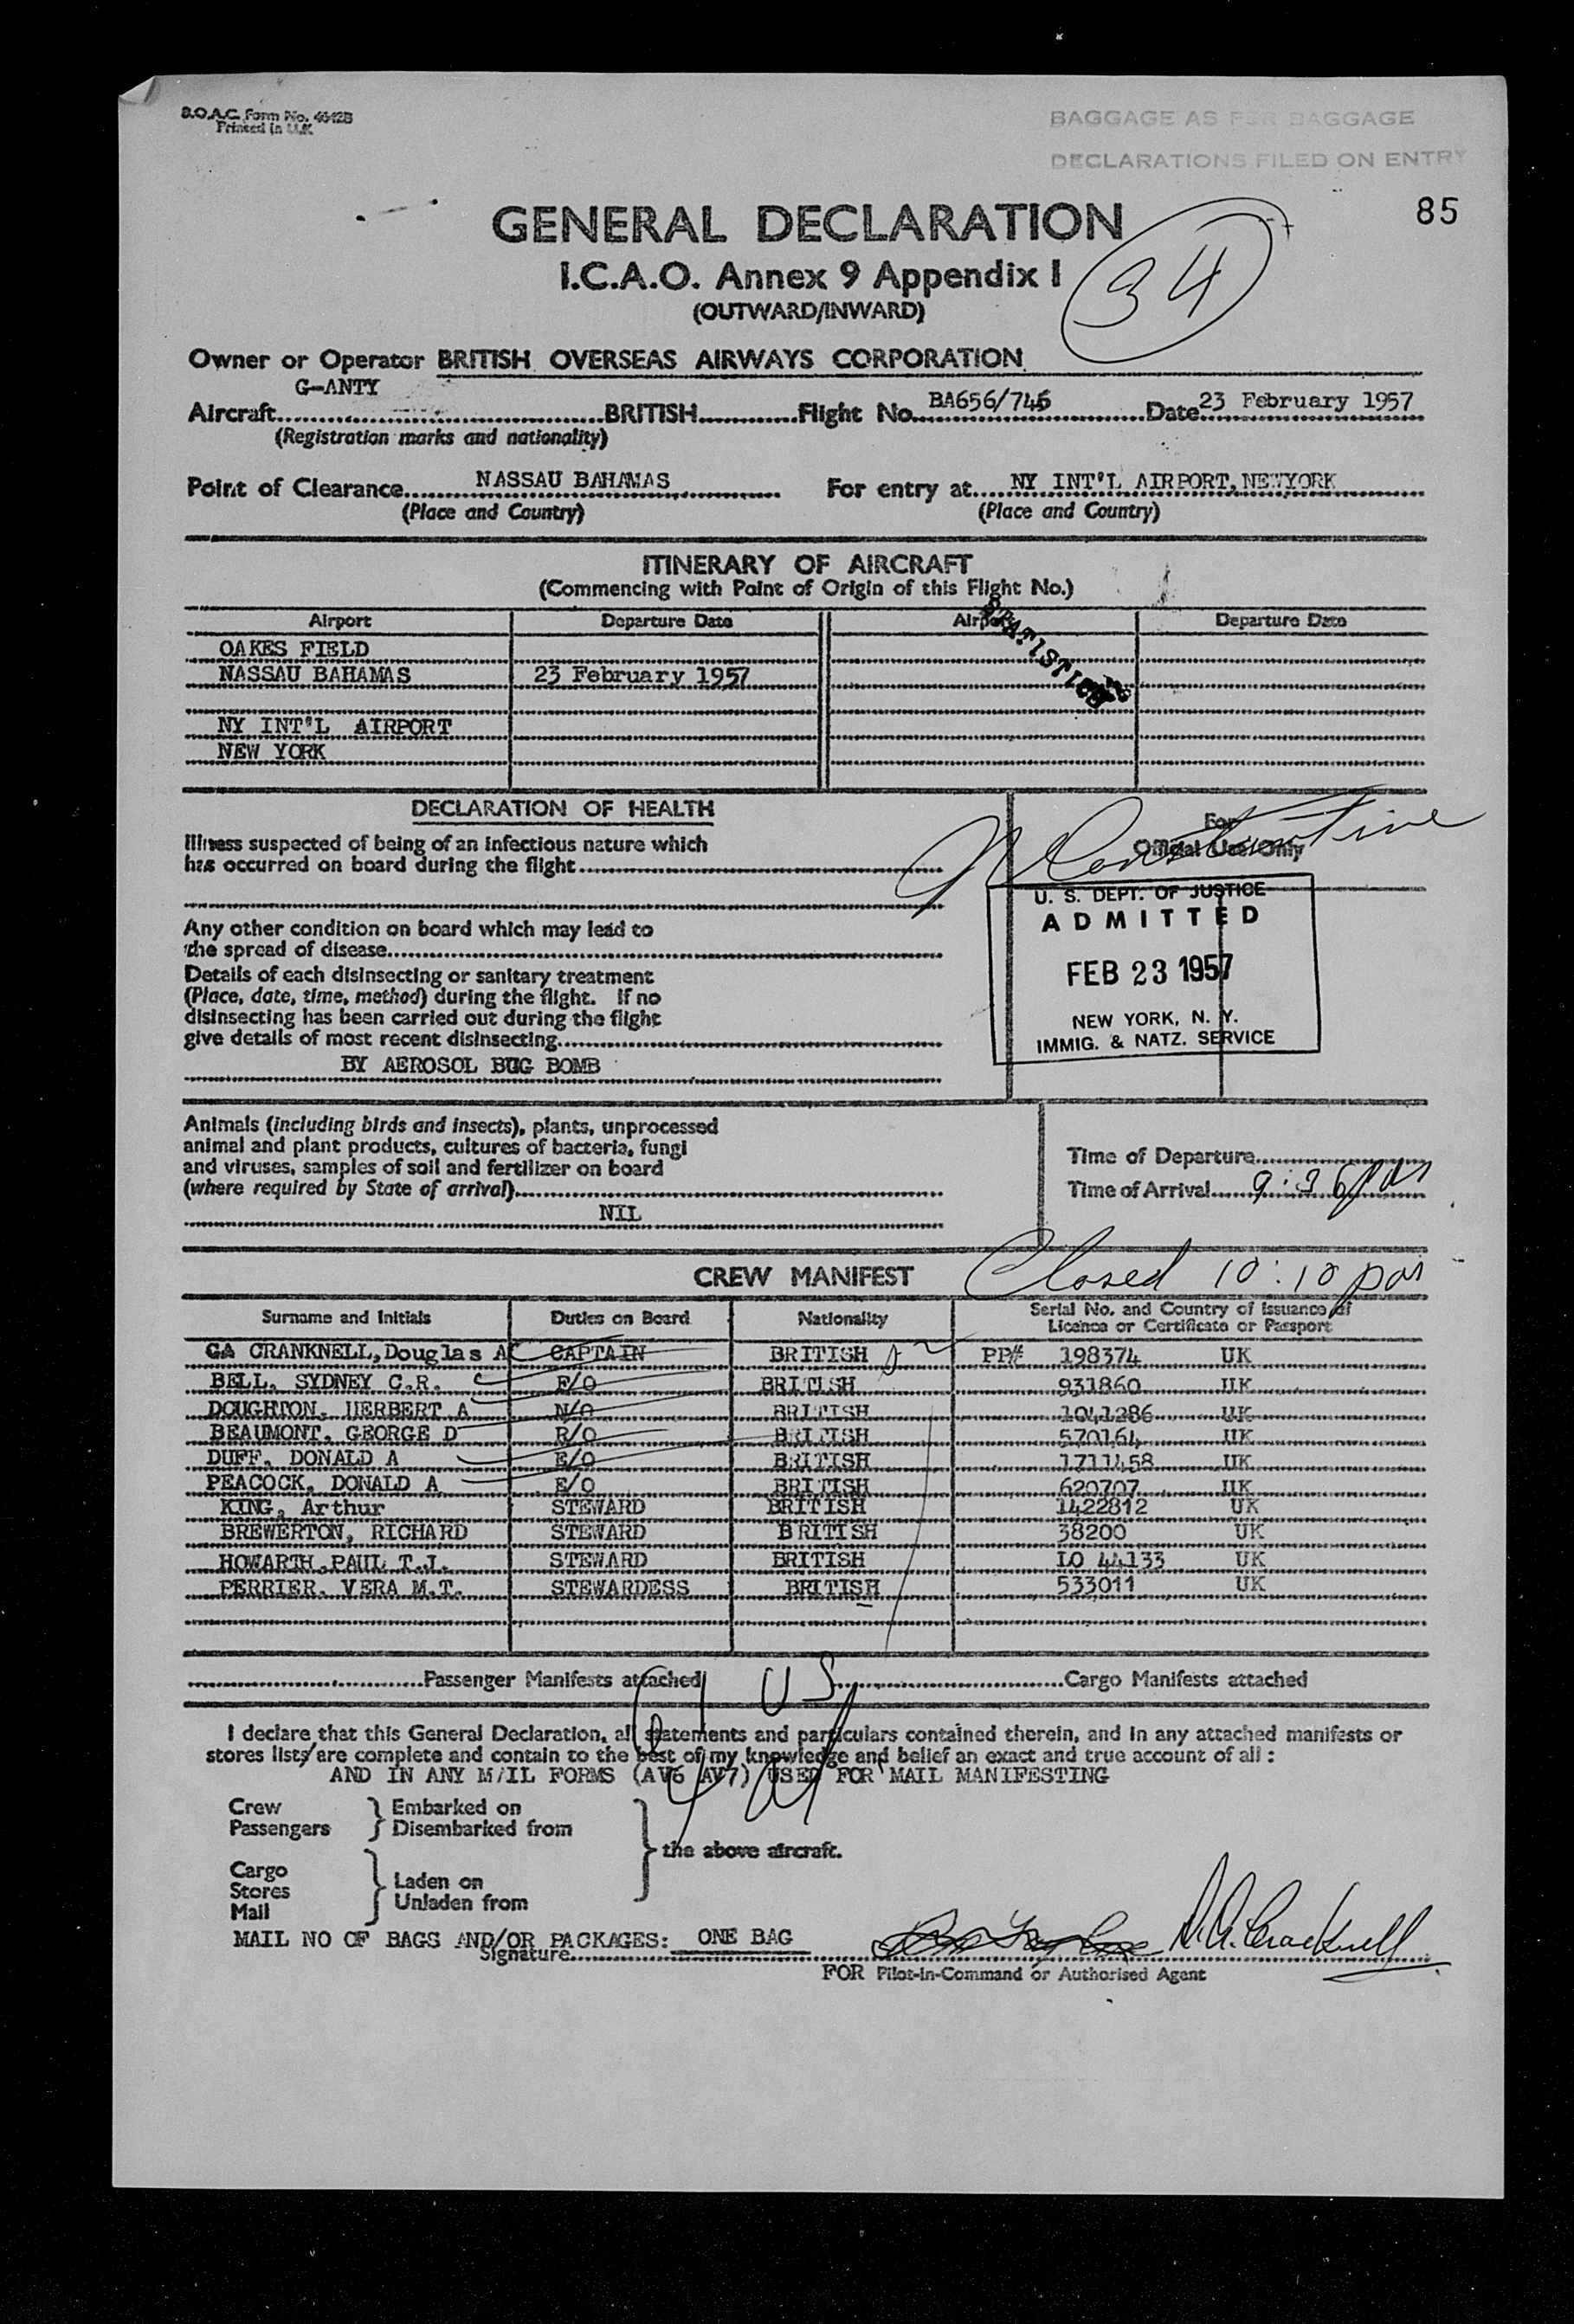 B.O.A.C. Form No. 4642B
Printed in U.K.
BAGGAGE AS PER BAGGAGE
DECLARATIONS FILED ON ENTRY
85
GENERAL DECLARATION
I.C.A.O. Annex 9 Appendix I
34
(OUTWARD/INWARD)
Owner or Operator BRITISH OVERSEAS AIRWAYS CORPORATION
G-ANTY BA656/746 23 February 1957
Aircraft BRITISH Flight No. Date
(Registration marks and nationality)
Point of Clearance NASSAU BAHAMAS For entry at NY INT'L AIRPORT, NEWYORK
(Place and Country) (Place and Country)
ITINERARY OF AIRCRAFT
(Commencing with Point of Origin of this Flight No.)
Airport Departure Date Airport Departure Date
STATISTICS
OAKES FIELD
NASSAU BAHAMAS 23 February 1957
NY INT'L AIRPORT
NEW YORK
DECLARATION OF HEALTH
For
Official Use Only
Illness suspected of being of an infectious nature which
has occurred on board during the flight
Constantine
U. S. DEPT. OF JUSTICE
ADMITTED
FEB 23 1957
NEW YORK, N. Y.
IMMIG. & NATZ. SERVICE
Any other condition on board which may lead to
the spread of disease
Details of each disinsecting or sanitary treatment
(Place, date, time, method) during the flight. If no
disinsecting has been carried out during the flight
give details of most recent disinsecting
BY AEROSOL BUG BOMB
Animals (including birds and insects), plants, unprocessed
animal and plant products, cultures of bacteria, fungi
and viruses, samples of soil and fertilizer on board
(where required by State of arrival)
NIL
Time of Departure
Time of Arrival 9:36 pm
CREW MANIFEST
Closed 10:10 pm
Surname and Initials Duties on Board Nationality Serial No. and Country of Issuance of
Licence or Certificate or Passport
CRANKNELL, Douglas A CAPTAIN BRITISH PP# 198374 UK
BELL, SYDNEY C.R. F/O BRITISH 931860 UK
DOUGHTON, HERBERT A N/O BRITISH 1041286 UK
BEAUMONT, GEORGE D R/O BRITISH 570164 UK
DUFF, DONALD A E/O BRITISH 1711458 UK
PEACOCK, DONALD A E/O BRITISH 620707 UK
KING, Arthur STEWARD BRITISH 1422812 UK
BREWERTON, RICHARD STEWARD BRITISH 38200 UK
HOWARTH, PAUL T.J. STEWARD BRITISH LO 44133 UK
PERRIER, VERA M.T. STEWARDESS BRITISH 533011 UK
Passenger Manifests attached Cargo Manifests attached
US
I declare that this General Declaration, all statements and particulars contained therein, and in any attached manifests or
stores lists are complete and contain to the best of my knowledge and belief an exact and true account of all :
AND IN ANY MAIL FORMS (AV6 AV7) USED FOR MAIL MANIFESTING
Crew
Passengers
Embarked on
Disembarked from
the above aircraft.
Cargo
Stores
Mail
Laden on
Unladen from
MAIL NO OF BAGS AND/OR PACKAGES: ONE BAG
Signature D. A. Cracknell
FOR Pilot-in-Command or Authorised Agent